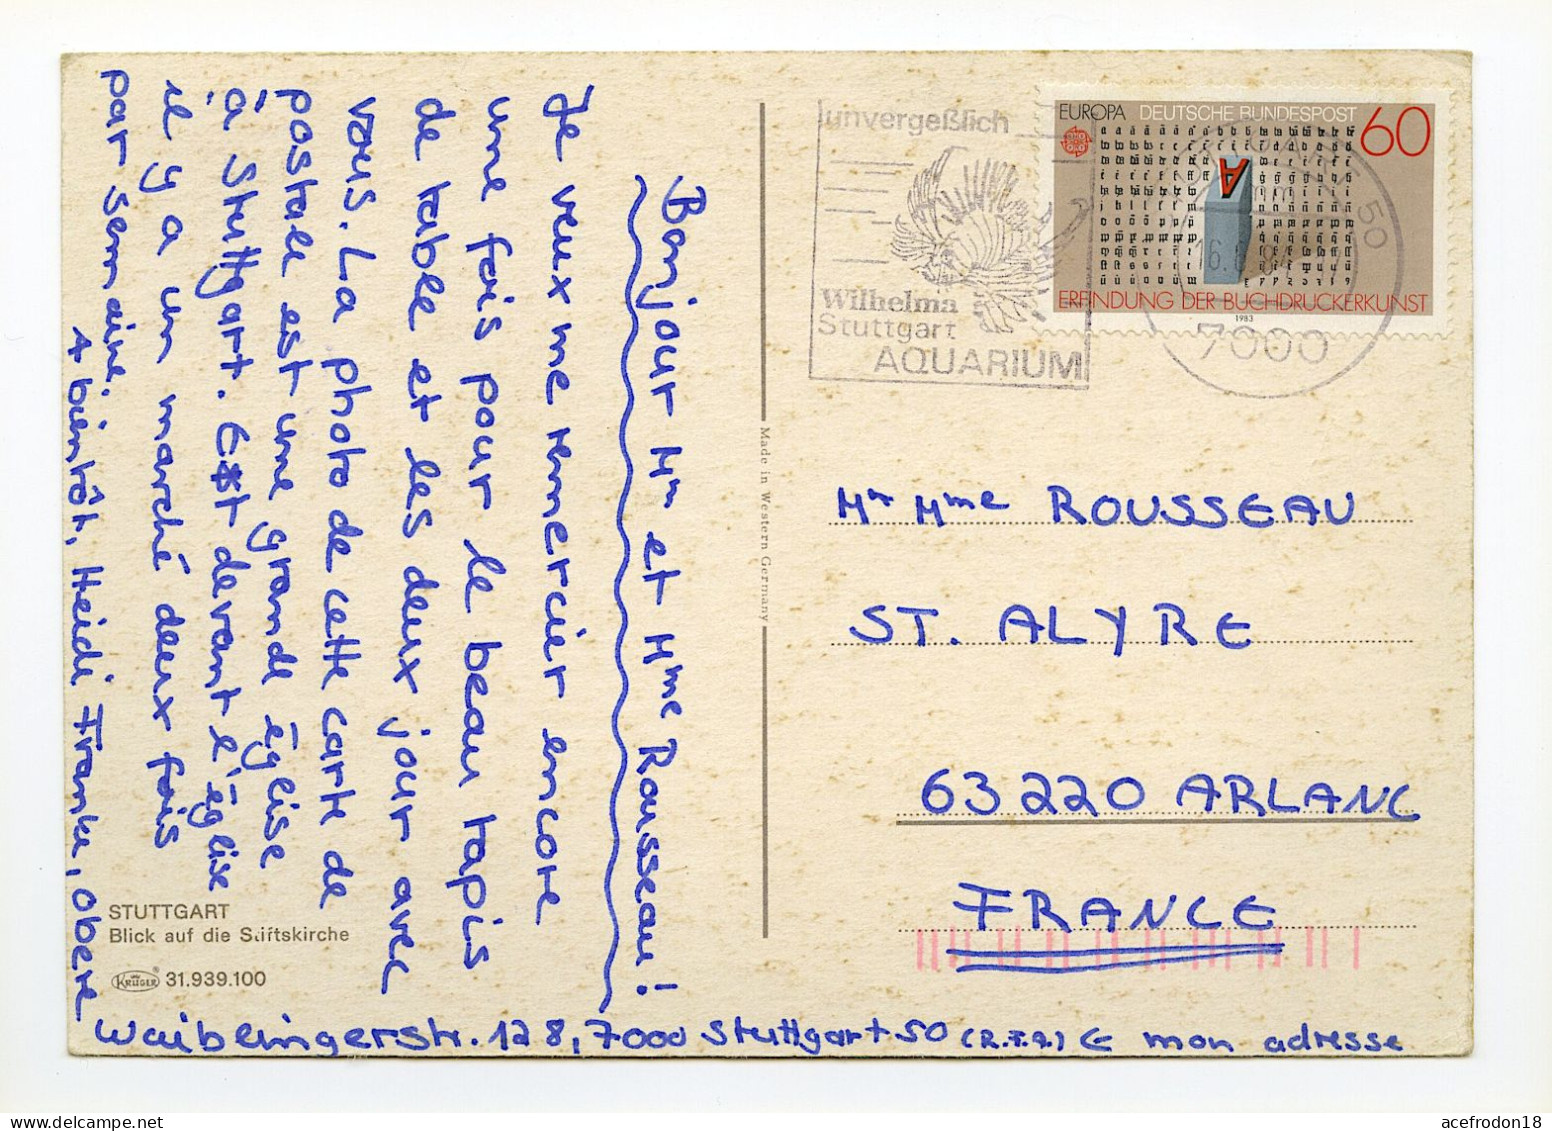 Bonjour Mr et Mme Rousseau!
Je veux me remercier encore
une fois pour le beau tapis
de table et les deux jour avec
vous. La photo de cette carte de
postale est une grande église
à Stuttgart. Est devant l'église
il y a un marché deux fois
par semaine.
A bientôt, Heidi Franke, Obere
Waiblingerstr. 128, 7000 Stuttgart 50 (R.F.A.) ← mon adresse
STUTTGART
Blick auf die Stiftskirche
KRÜGER 31.939.100
Made in Western Germany
unvergeßlich
Wilhelma
Stuttgart
AQUARIUM
EUROPA DEUTSCHE BUNDESPOST 60
A
ERFINDUNG DER BUCHDRUCKERKUNST
1983
50
7000
Mr Mme ROUSSEAU
ST. ALYRE
63220 ARLANC
FRANCE
acefrodon18